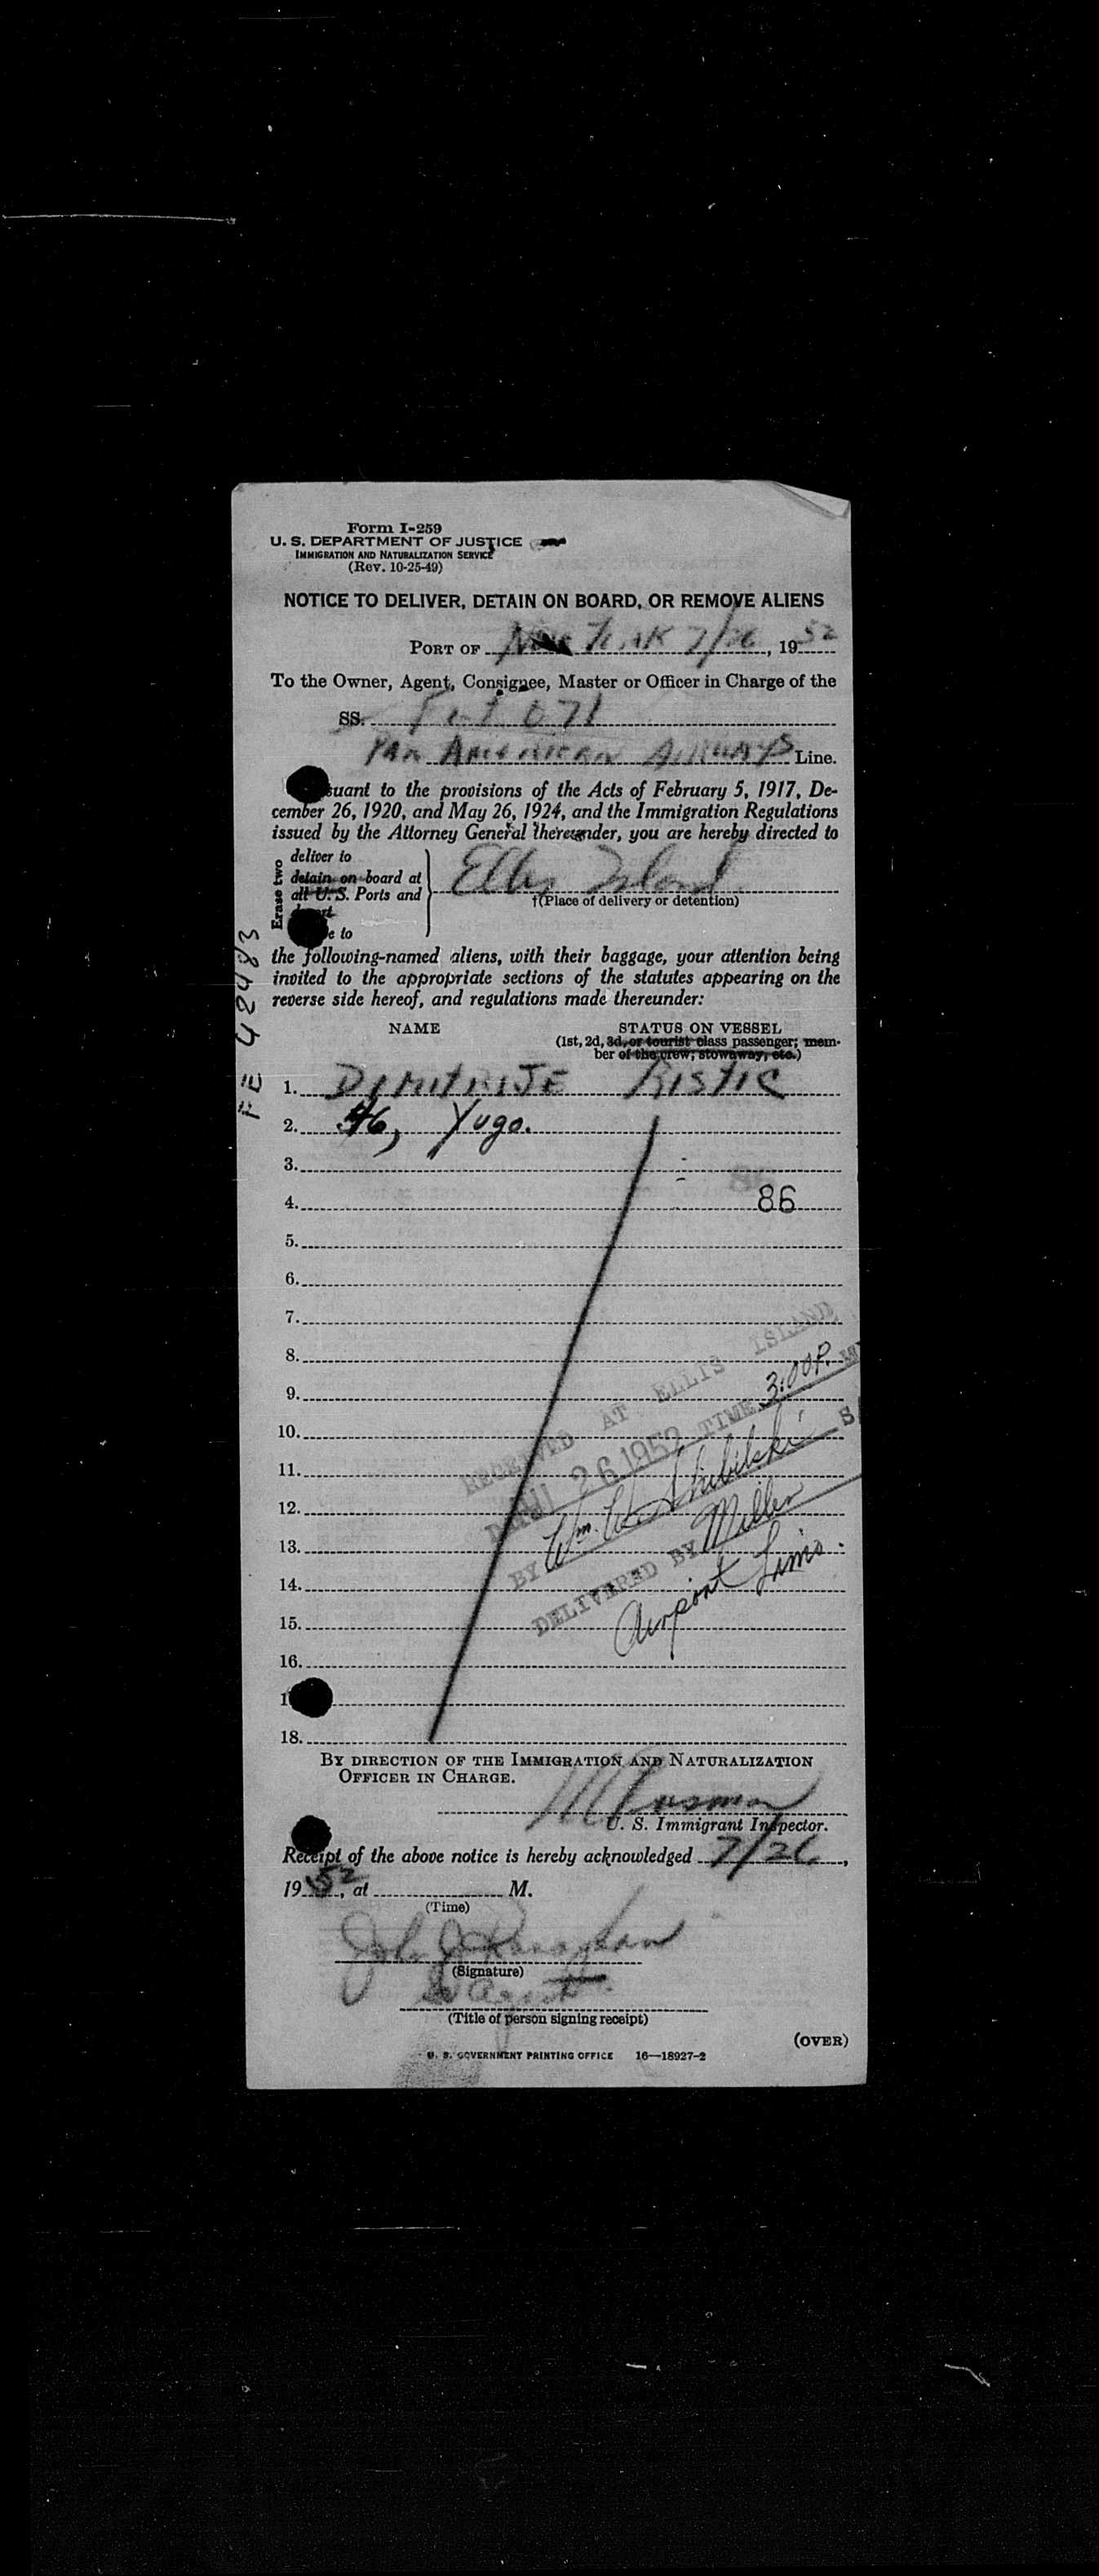 Form I-259
U. S. DEPARTMENT OF JUSTICE
IMMIGRATION AND NATURALIZATION SERVICE
(Rev. 10-25-49)
NOTICE TO DELIVER, DETAIN ON BOARD, OR REMOVE ALIENS
PORT OF New York 7/26, 1952
To the Owner, Agent, Consignee, Master or Officer in Charge of the
SS. 071
PAN AMERICAN AIRWAYS Line.
suant to the provisions of the Acts of February 5, 1917, De-
cember 26, 1920, and May 26, 1924, and the Immigration Regulations
issued by the Attorney General thereunder, you are hereby directed to
Erase two
deliver to
detain on board at
all U. S. Ports and
e to
Ellis Island
†(Place of delivery or detention)
the following-named aliens, with their baggage, your attention being
invited to the appropriate sections of the statutes appearing on the
reverse side hereof, and regulations made thereunder:
FE 42483
NAME STATUS ON VESSEL
(1st, 2d, 3d, or tourist class passenger; mem-
ber of the crew, stowaway, etc.)
1. DIMITRIJE RISTIC
2. 46, Yugo.
3.
4. 86
5.
6.
7.
8.
9.
10.
11.
12.
13.
14.
15.
16.
1
18.
RECEIVED AT ELLIS ISLAND,
26 1952 TIME 3:00 P. M
BY Wm. W. Shibilski
DELIVERED BY Miller
Airport Limo.
BY DIRECTION OF THE IMMIGRATION AND NATURALIZATION
OFFICER IN CHARGE.
U. S. Immigrant Inspector.
Receipt of the above notice is hereby acknowledged 7/26,
1952, at M.
(Time)
John J.
(Signature)
agent
(Title of person signing receipt)
(OVER)
U. S. GOVERNMENT PRINTING OFFICE 16—18927-2